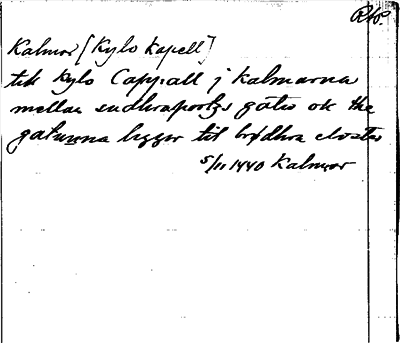 Kalmar [Kylo Kapell]
tik Kylo Cappall j kalmarna
mellan sudhraportzs gatu ok the
gatunna ligger til brødhra closter
5/11 1440 Kalmar